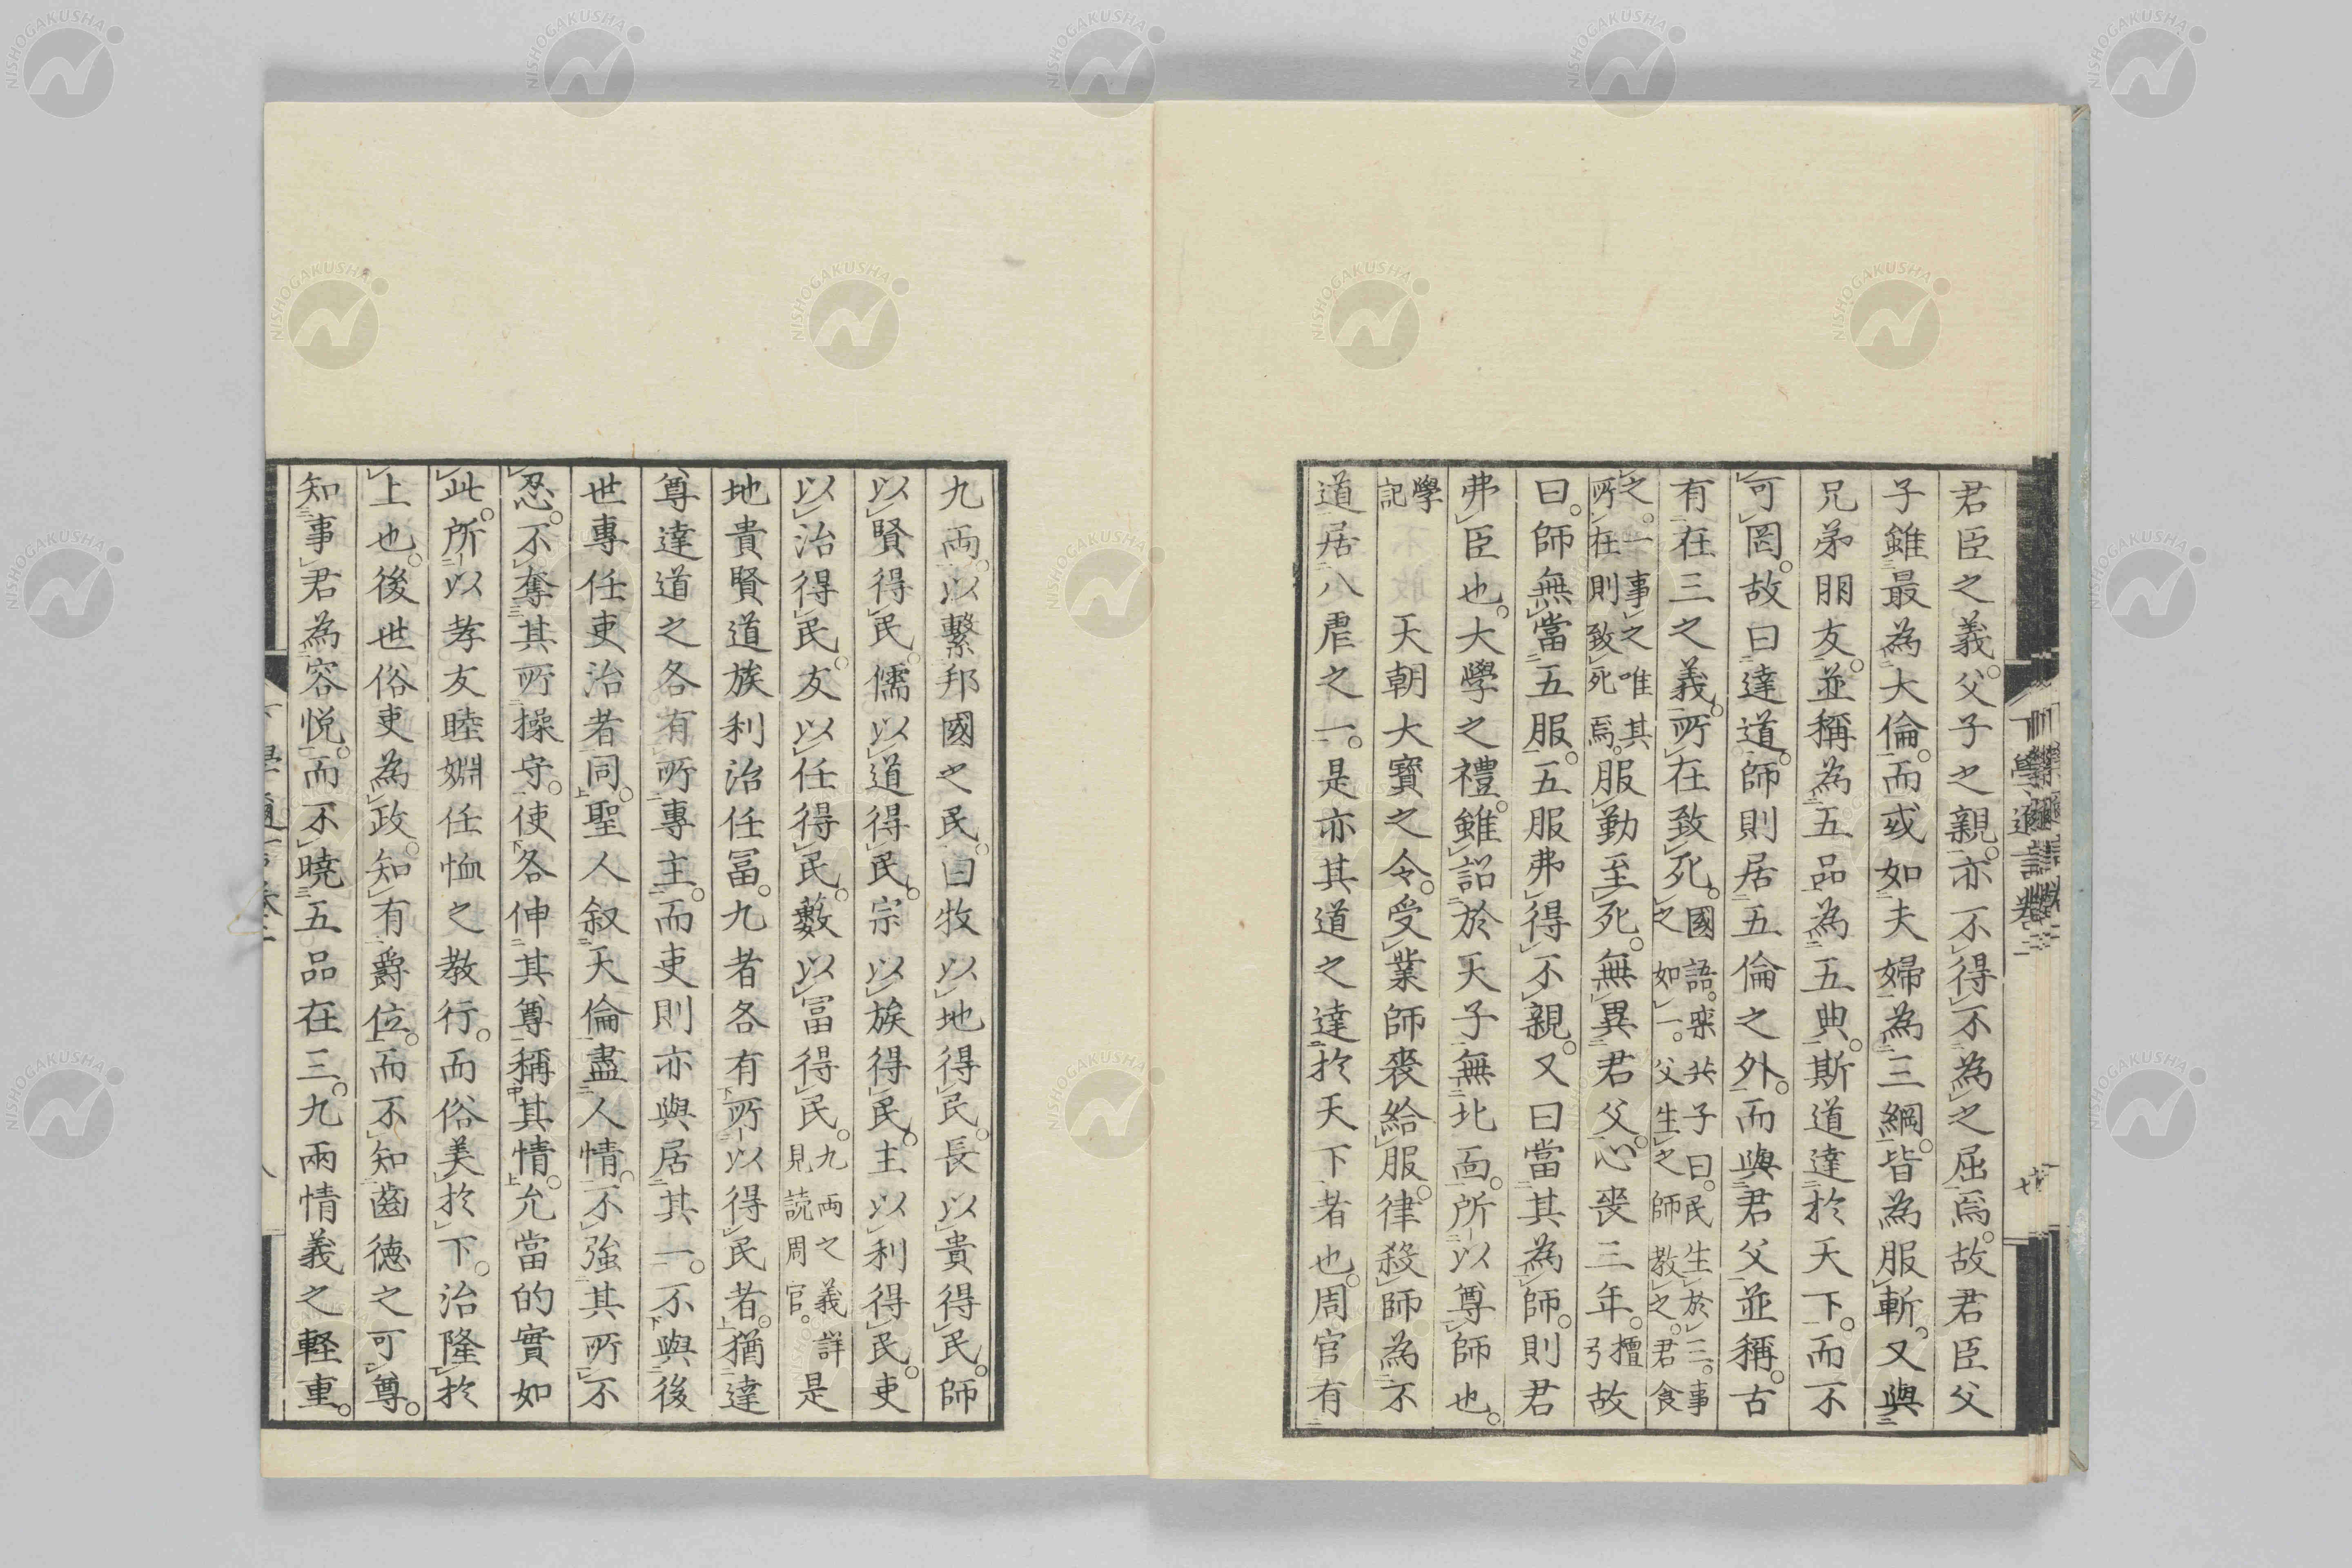 君臣之義。父子之親。亦不得不為之屈焉。故君臣父
子雖最為大倫。而或如夫婦為三綱。皆為服斬。又與
兄弟朋友。並稱為五品為五典。斯道達於天下。而不
可罔。故曰達道。師則居五倫之外。而與君父並稱。古
有在三之義。所在致死。國語。欒共子曰。民生於三。事之如一。父生之師教之。君食
之。一事之唯其所在則致死焉。服勤至死。無異君父。心喪三年。檀弓故
曰。師無當五服。五服弗得不親。又曰當其為師。則君
弗臣也。大學之禮。雖詔於天子無北面。所以尊師也。
學記 天朝大寶之令。受業師喪給服。律殺師為不
道居八虐之一。是亦其道之達於天下者也。周官有
九両。以繫邦國之民。曰牧以地得民。長以貴得民。師
以賢得民。儒以道得民。宗以族得民。主以利得民。吏
以治得民。友以任得民。藪以冨得民。九両之義詳見読周官。是
地貴賢道族利治任冨。九者各有所以得民者。猶達
尊達道之各有所專主。而吏則亦與居其一。不與後
世專任吏治者同。聖人叙天倫盡人情。不強其所不
忍。不奪其所操守。使各伸其尊稱其情。允當的實如
此。所以孝友睦婣任恤之教行。而俗美於下。治隆於
上也。後世俗吏為政。知有爵位。而不知齒徳之可尊。
知事君為容悦。而不曉五品在三。九兩情義之軽重。